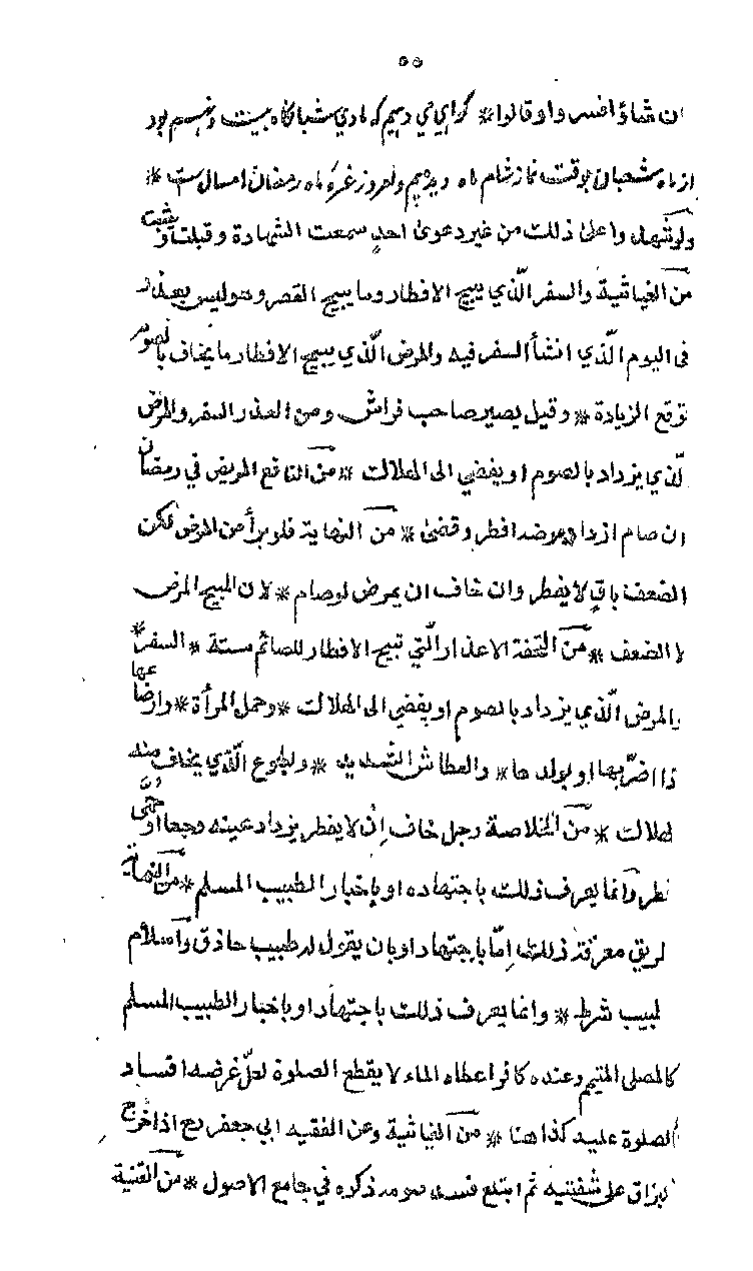 ٥٥
ان شاؤا فسروا وقالوا * گواهي مي دهيم كه ماه بيست ونهم بود
از ماه شعبان بوقت نماز شام ماه ديديم وامروز غرّه ماه رمضان امسال ست *
ولو شهدوا على ذلك من غير دعوى احد سمعت الشهادة وقبلت
من الغياثية والسفر الّذي يبيح الافطار وما يبيح القصر وهو ليس بعذر
فى اليوم الّذي انشأ السفر فيه والمرض الّذي يبيح الافطار ما يخاف بالصوم
توقع الزيادة * وقيل يصير صاحب فراش ومن العذر السفر والمرض
لّذي يزداد بالصوم او يفضي الى الهلاك * من النافع المريض في رمضان
ان صام ازداد مرضه افطر وقضى * من النهاية فلو برأ من المرض لكن
الضعف باقٍ لا يفطر وان خاف ان يمرض لو صام * لان المبيح المرض
لا الضعف * من التحفة الاعذار الّتي تبيح الافطار للصائم ستة * السفر *
والمرض الّذي يزداد بالصوم او يفضي الى الهلاك * وحمل المرأة * وارضاعها
ذا اضرّ بها او بولدها * والعطاش الشديد * والجوع الّذي يخاف منه
لهلاك * من الخلاصة رجل خاف إن لا يفطر يزداد عينه وجعا او حُمَّى
نطر وانما يعرف ذلك باجتهاده او باخبار الطبيب المسلم * من النهاية
لريق معرفة ذلك إمّا باجتهاد او بان يقول له طبيب حاذق واسلام
لبيب شرط * وانما يعرف ذلك باجتهاد او باخبار الطبيب المسلم
كالمصلى المتيمم وعنده كافر اعطاه الماء لا يقطع الصلوة لعلّ غرضه افساد
الصلوة عليه كذا هنا * من الغياثية وعن الفقيه ابي جعفر رح اذا خرج
لبزاق على شفتيه ثم ابتلع فسد صومه ذكره في جامع الاصول * من القنية